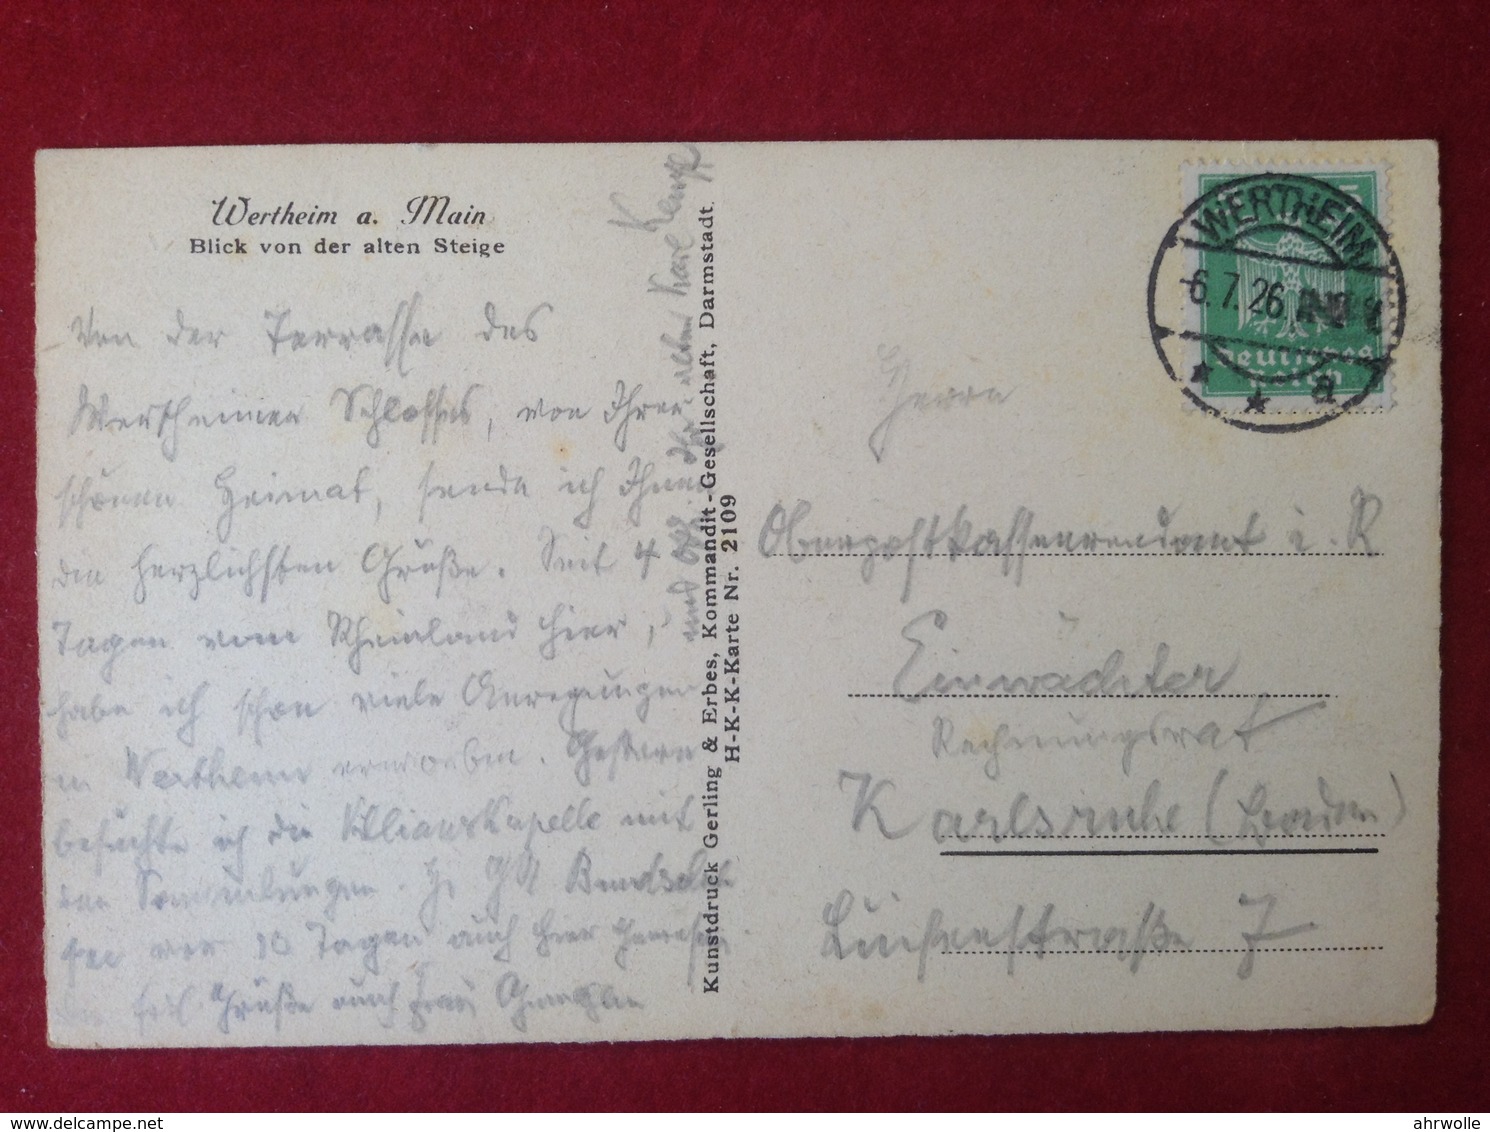 Wertheim a. Main
Blick von der alten Steige
Von der Terrasse des
Wertheimer Schlosses, von Ihrer
schönen Heimat, sende ich Ihnen
die herzlichsten Grüße. Seit 4
Tagen vom Rheinland hier,
habe ich schon viele Anregungen
in Wertheim erworben. Gestern
besuchte ich die Kilianskapelle mit
den Sammlungen. H.
vor 10 Tagen auch hier gewesen.
Grüße auch Frau Gemahlin
und
Ihr alter Karl Kempf
Kunstdruck Gerling & Erbes, Kommandit-Gesellschaft, Darmstadt
H-K-K-Karte Nr. 2109
WERTHEIM
-6.7.26.
* * a
Deutsches
Reich
Herrn
Oberpostkassenrendant i. R
Einwächter
Rechnungsrat
Karlsruhe (Baden)
7
ahrwolle